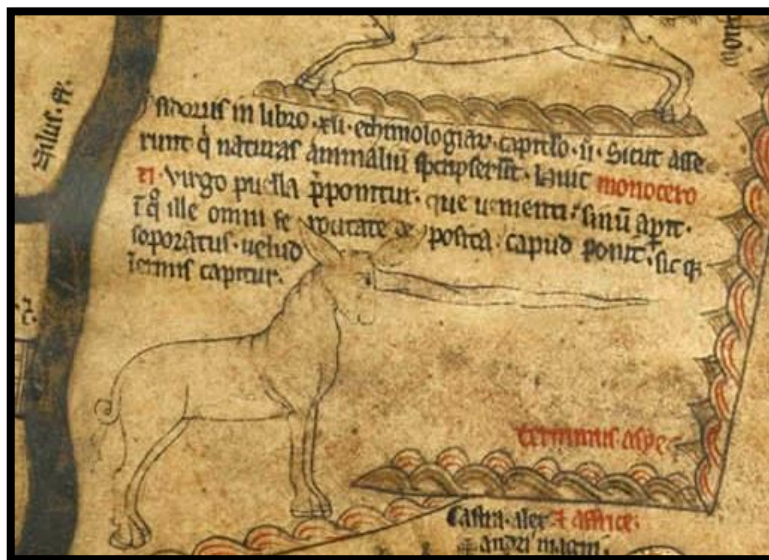 Nilus. fl.
ysidorus in libro · xii · ethimologiar · capitulo · ii · Sicut asse
runt q̄ naturas animaliū scripserūt · huic monocero
ti · Virgo puella p̄ponitur · que uenienti · sinū aperit ·
ī qͦ ille omni fe rocitate de posita · capud ponit · sic qꝫ
soporatus · uelud
īermis capitur.
terminus asye
Castra · alex et affrice:
andri magni